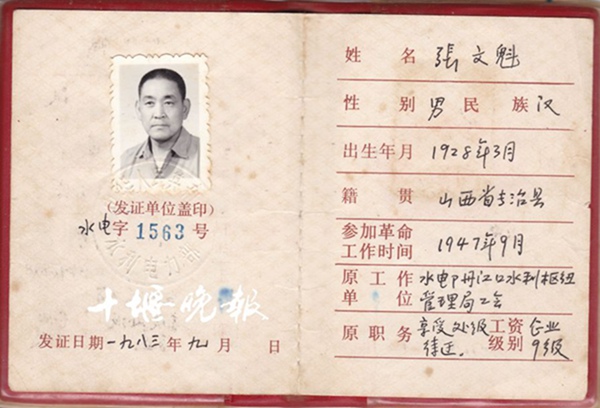 (发证单位盖印)
水电字1563号
水利电力部
十堰晚报
发证日期一九八三年九月 日
姓名 張文魁
性别 男 民族 汉
出生年月 1928年3月
籍贯 山西省长治县
参加革命
工作时间 1947年9月
原工作 水电卩丹江口水利枢纽
单位 管理局工会
原职务 享受处级 工资 企业
待迂. 级别 9级